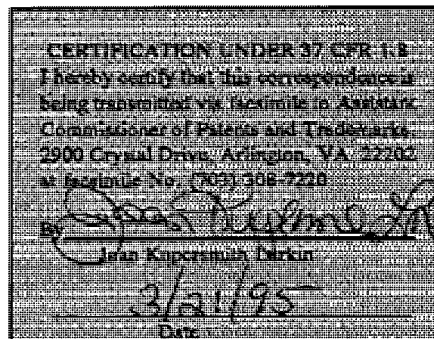 CERTIFICATION UNDER 37 CFR 1.8
I hereby certify that this correspondence is
being transmitted via facsimile to Assistant
Commissioner of Patents and Trademarks,
2900 Crystal Drive, Arlington, VA 22202
at facsimile No. (703) 308-7220
By
Jean Kupersmith Durkin
3/21/95
Date